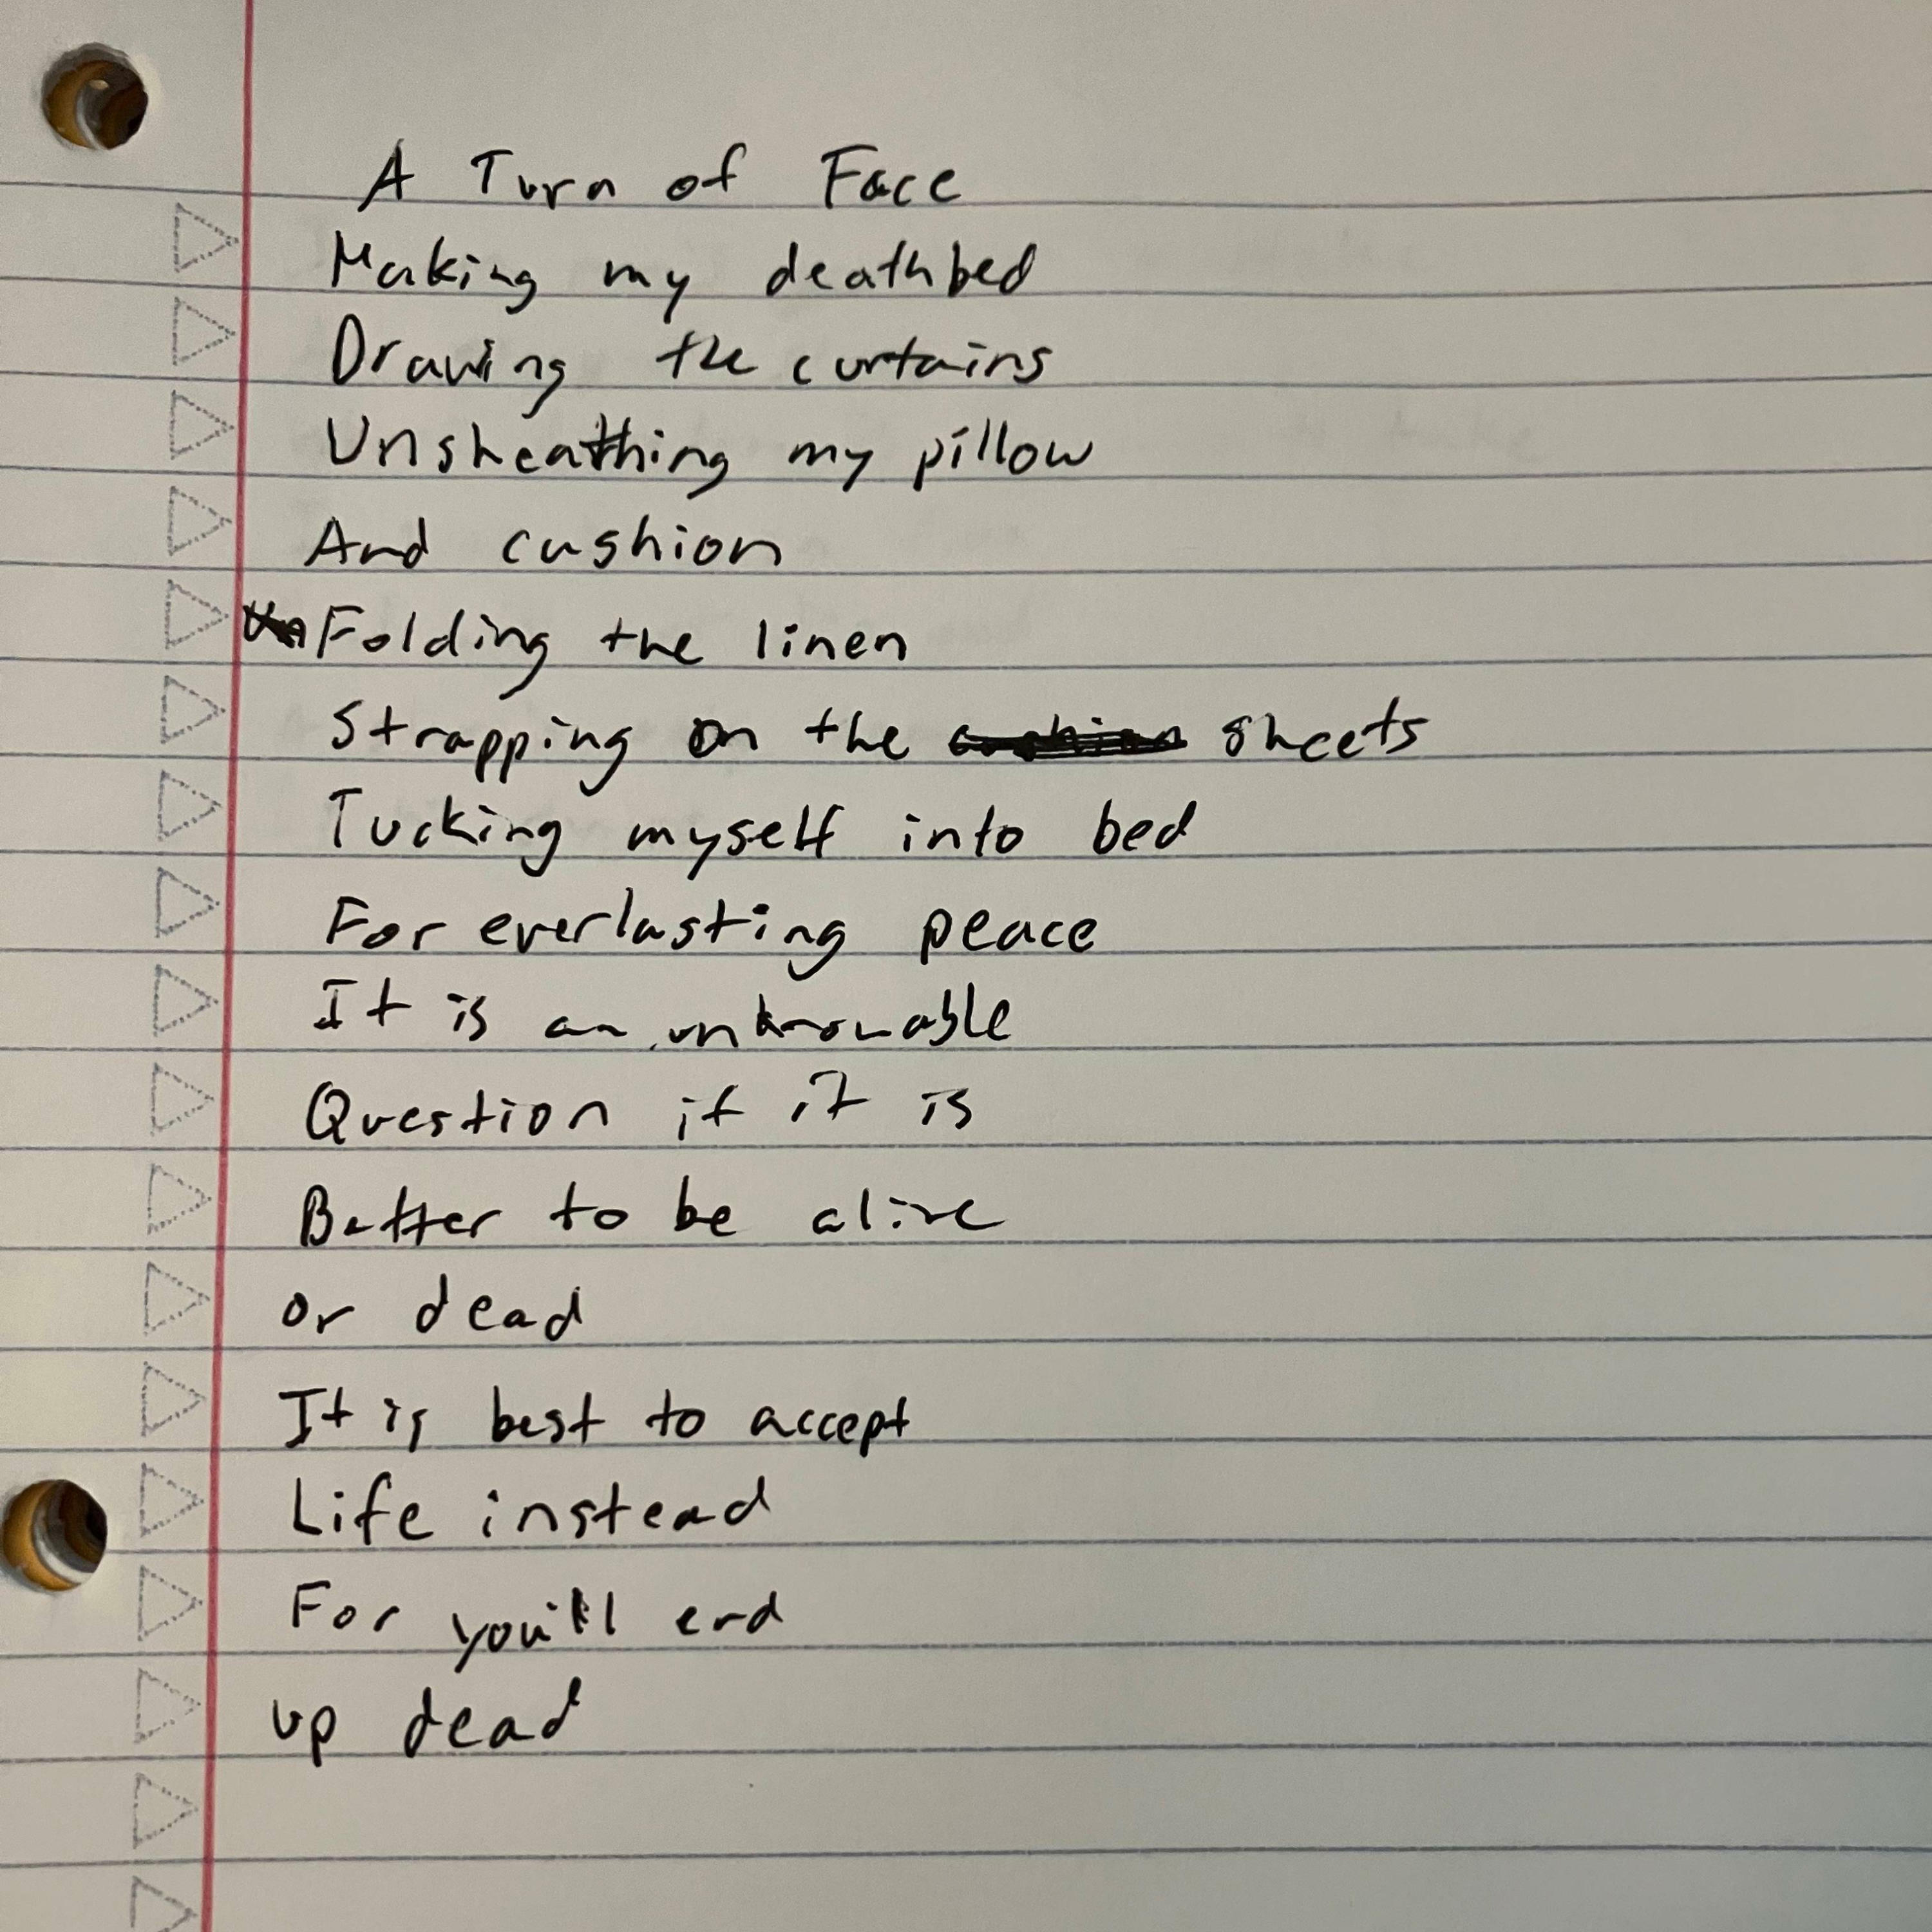 A Turn of Face
Making my deathbed
Drawing the curtains
Unsheathing my pillow
And cushion
Folding the linen
Strapping on the sheets
Tucking myself into bed
For everlasting peace
It is an unknowable
Question if it is
Better to be alive
or dead
It is best to accept
Life instead
For you'll end
up dead